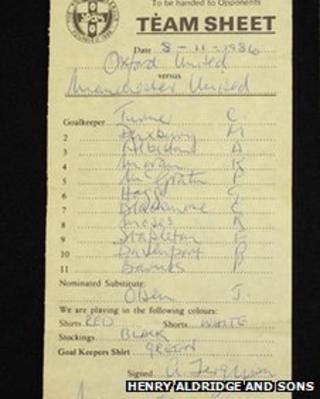 To be handed to Opponents
TEAM SHEET
Date 8-11-1986
Oxford United
versus
Manchester United
Goalkeeper Turner C.
2 Duxbury M
3 Albiston A
4 Moran K
5 McGrath P
6 Hogg G
7 Blackmore C
8 Moses R
9 Stapleton F
10 Davenport P
11 Barnes P
Nominated Substitute:
Olsen J.
We are playing in the following colours:
Shirts RED Shorts WHITE
Stockings BLACK
Goal Keepers Shirt GREEN
Signed A. Ferguson
HENRY ALDRIDGE AND SONS